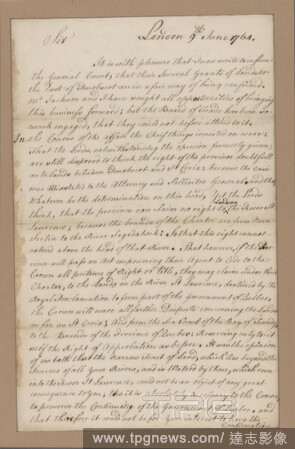 London 9th June 1764.
Sirs
It is with pleasure that I can now write to inform
the General Court, that their several Grants of Lands to
the East of Penobscot are in a fair way of being confirmed.
Mr Jackson and I have sought all opportunities of bringing
this business forward; but the Board of Trade has been so
much engaged, that they could not before attend to it.
In the Course of the affair the Chief things insisted on were;
That the Lords, notwithstanding the opinion formerly given,
are still disposed to think the right of the province doubtfull
as to Lands between Penobscot and St Croix; because the Case
was Mistated to the Attorney and Solicitor General,
Whatever be the determination on this head, Yet the Lords
think, that the province can claim no right to the River St
Laurence; because the bounds of the Charter are from Nova
Scotia to the River Sagadahock; So that this right cannot
extend above the head of that River. That however, if the
will pass an Act impowering their Agent to Cede to the
Crown all pretence of Right or title, they may claim under their
Charter, to the Lands on the River St Laurence, destined by the
Royal Proclamation to form part of the Government of Quebec,
the Crown will wave all further Dispute concerning the Lands
as far as St Croix, and from the Sea Coast of the Bay of Fundy
to the Bounds of the Province of Quebec; Reserving only to it
self the Right of Approbation as before. It was the opinion
of us both that the narrow Tract of Land, which lies beyond the
Sources of all your Rivers, and is Watered by those, which run
into the River St Laurence, could not be an object of any great
consequence to you; tho it is absolutely necessary to the Crown,
to preserve the Continuity of the Government of Quebec, and
that therefore it could not be for your interest to have the
Confirmation
www.tpgnews.com / 達志影像